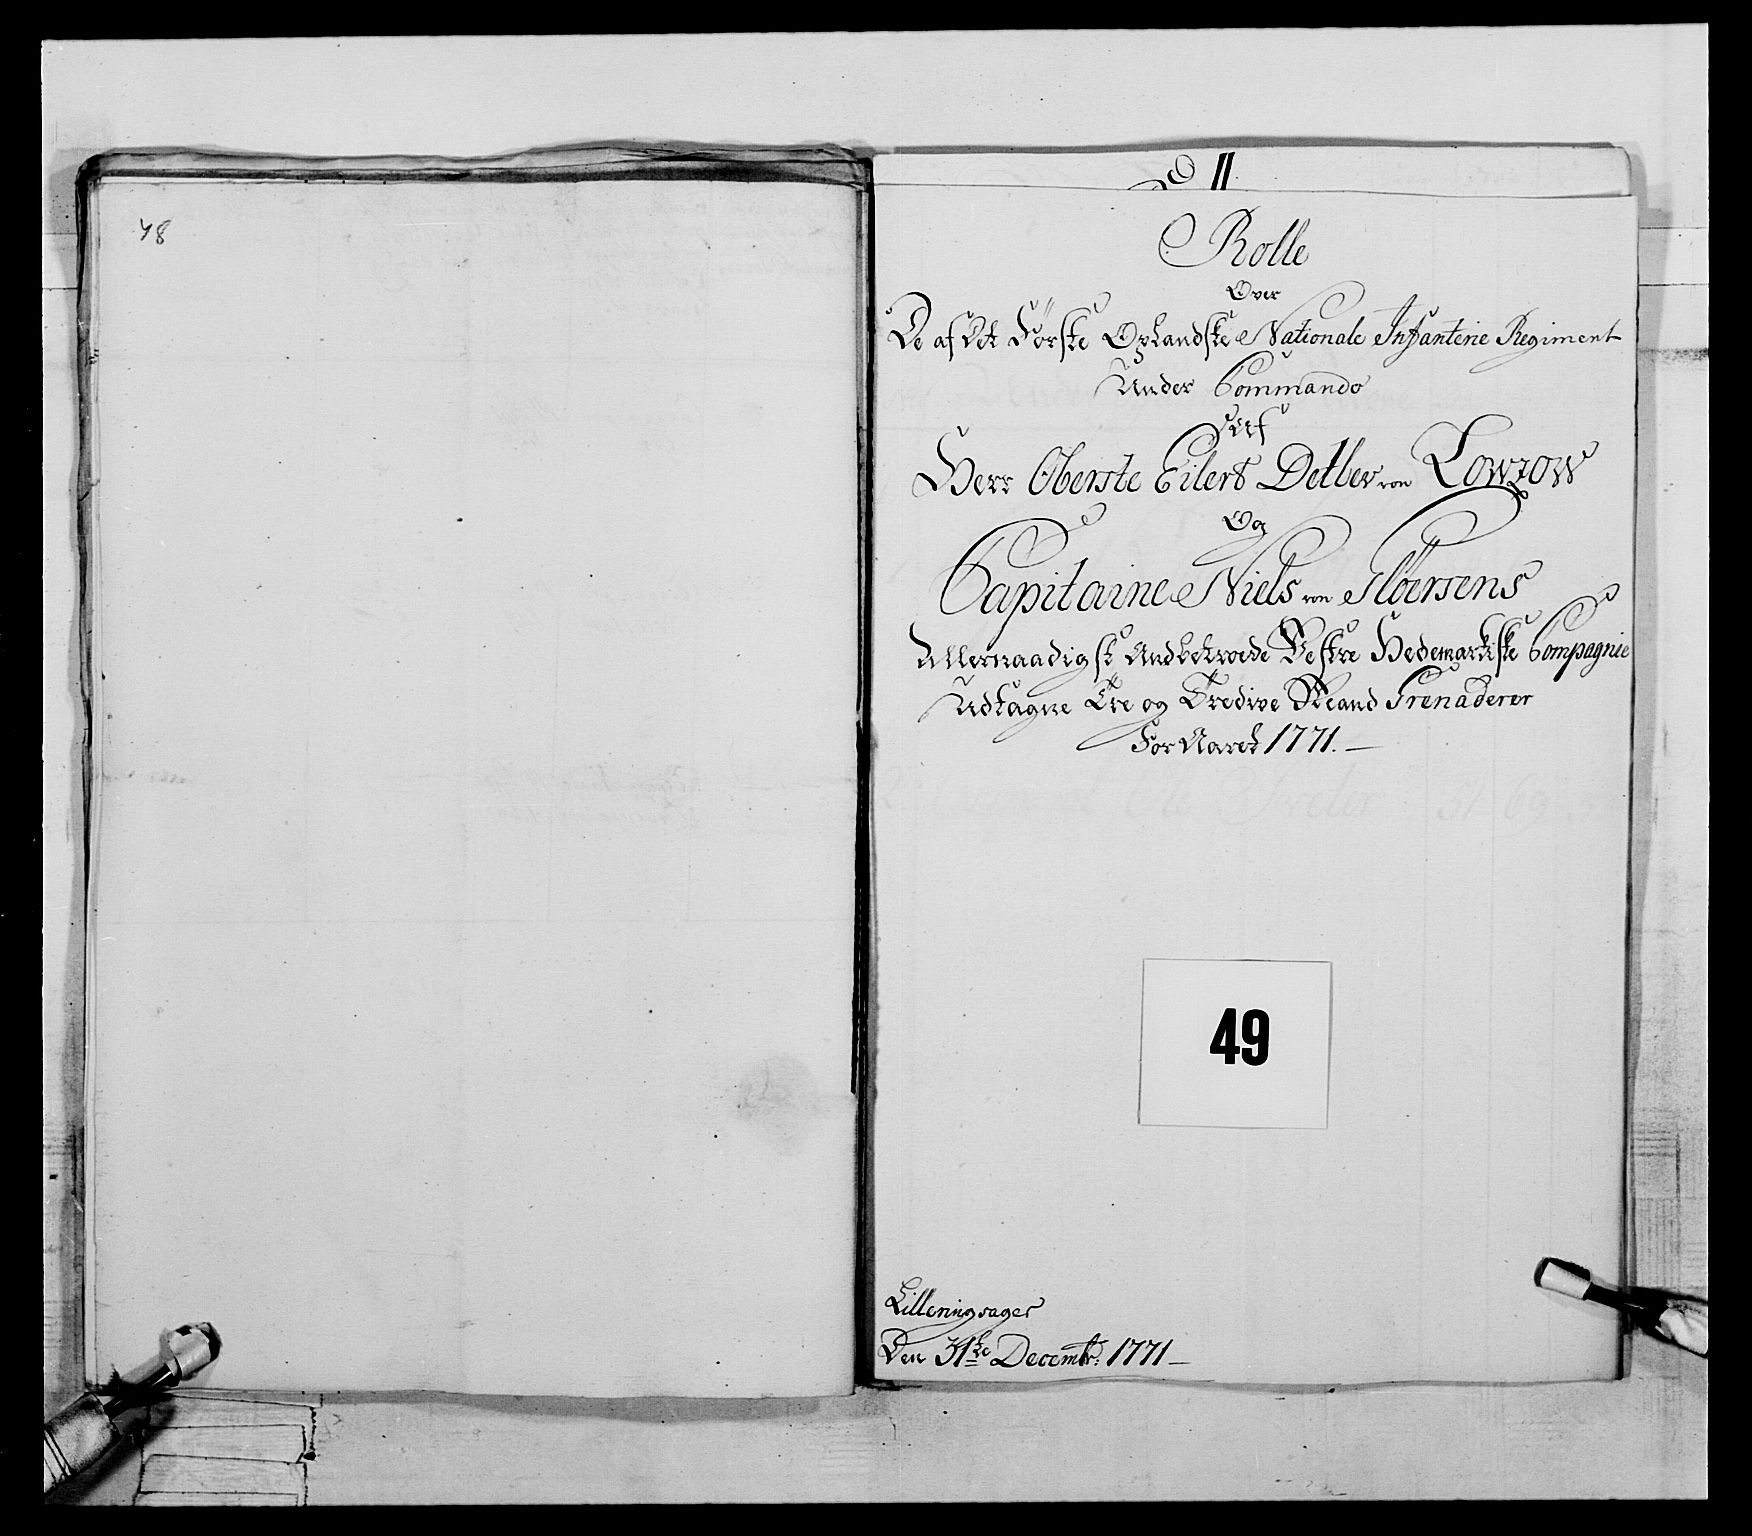 48
No 11.
Rolle
Over
De af det Første Oplandske Nationale Infanterie Regiment
Under Commando
Af
Herr Oberste Eilert Detlev von Lowzow
Og
Capitaine Niels von
Allernaadigst Andbetroede Vestre Hedemarkiske Compagnie
Udtagne Tre og Tredive Mand Grenaderer
For Aaret 1771.
49
Lilleringsager
Den 31te Decembr: 1771